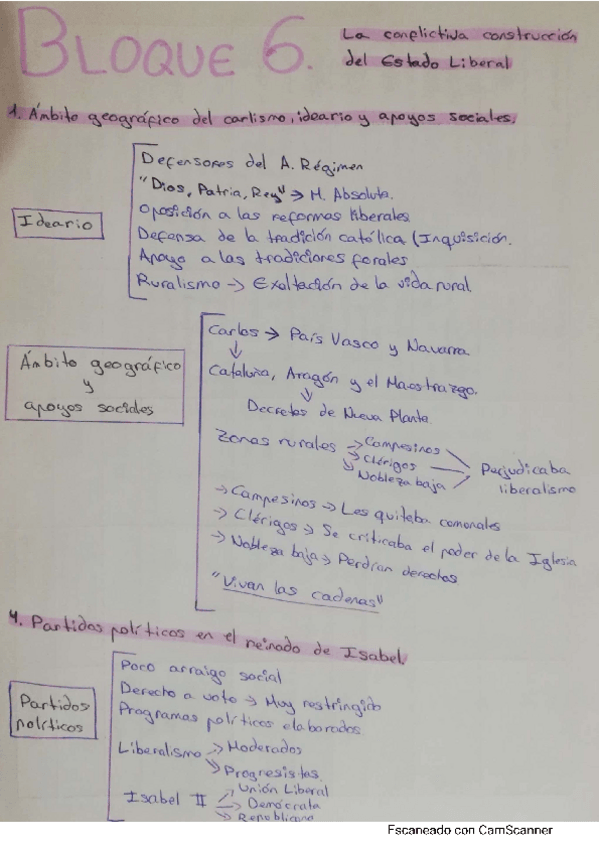 BLOQUE 6.
La conflictiva construcción
del Estado Liberal
1. Ámbito geográfico del carlismo, ideario y apoyos sociales.
Ideario
Defensores del A. Régimen
"Dios, Patria, Rey" → M. Absoluta.
Oposición a las reformas liberales
Defensa de la tradición católica (Inquisición.
Apoyo a las tradiciones forales
Ruralismo → Exaltación de la vida rural
Ámbito geográfico
y
apoyos sociales
Carlos → País Vasco y Navarra
↓
Cataluña, Aragón y el Maestrazgo.
↓
Decretos de Nueva Planta
Zonas rurales → Campesinos
→ Clérigos
↘ Nobleza baja
Perjudicaba
liberalismo
→ Campesinos → Les quitaba comonales
→ Clérigos → Se criticaba el poder de la Iglesia
→ Nobleza baja → Perdían derechos
"Vivan las cadenas"
4. Partidos políticos en el reinado de Isabel.
Partidos
políticos
Poco arraigo social
Derecho a voto → Muy restringido
Programas políticos elaborados
Liberalismo → Moderados
↘ Progresistas.
Isabel II → Unión Liberal
→ Demócrata
→ Republicano
Escaneado con CamScanner